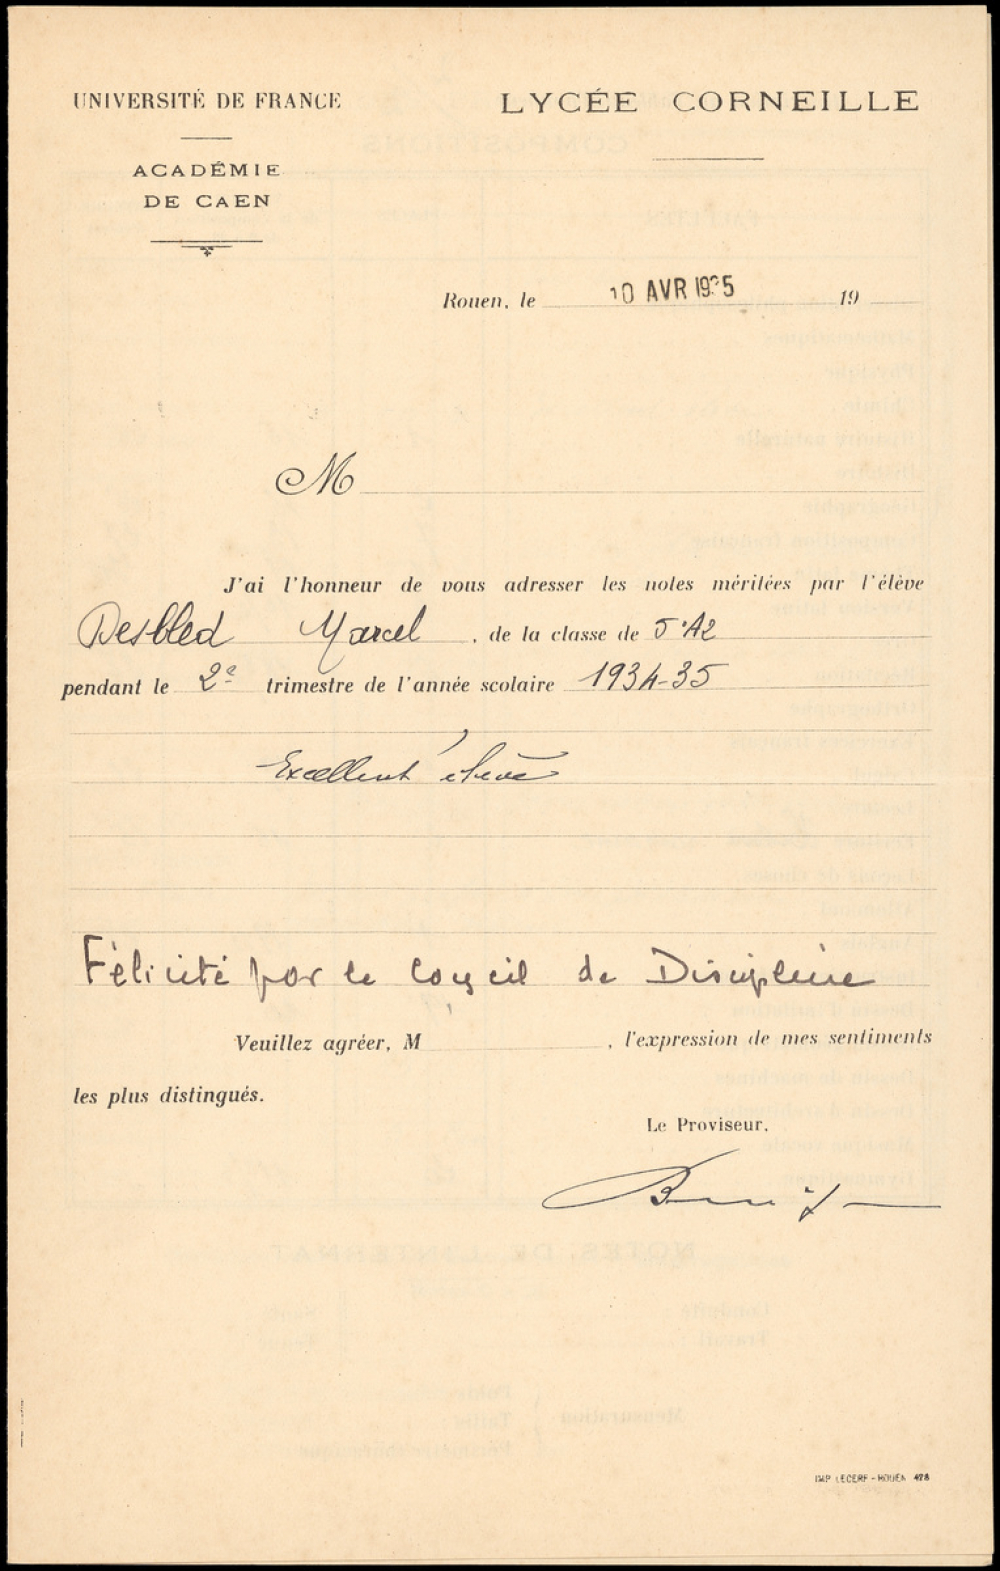 UNIVERSITÉ DE FRANCE
ACADÉMIE
DE CAEN
LYCÉE CORNEILLE
Rouen, le 10 AVR 1935 19
M
J'ai l'honneur de vous adresser les notes méritées par l'élève
Desbled Marcel, de la classe de 5e A2
pendant le 2e trimestre de l'année scolaire 1934-35
Excellent élève
Félicité par le Conseil de Discipline
Veuillez agréer, M , l'expression de mes sentiments
les plus distingués.
Le Proviseur,
IMP LECERF - ROUEN 428